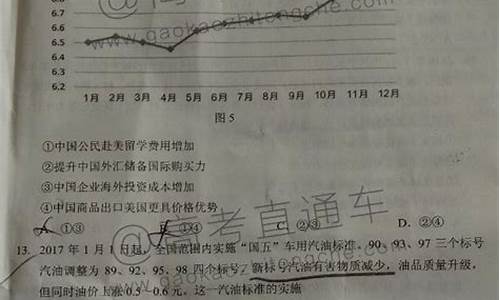 6.8
6.7
6.6
6.5
6.4
6.3
6.2
www.gaokaozhitongche.com
1月 2月 3月 4月 5月 6月 7月 8月 9月 10月 11月 12月
图 5
①中国公民赴美留学费用增加
②提升中国外汇储备国际购买力
③中国企业海外投资成本增加
④中国商品出口美国更具价格优势
@高考直通车
①③ ①④ C. ②③ D. ②④
13. 2017 年 1 月 1 日起，全国范围内实施“国五”车用汽油标准。90、93、97 三个标号
汽油调整为 89、92、95、98 四个标号，新标号汽油有害物质减少，油品质量升级，
但同时油价上涨 0.5—0.6 元。这一汽油标准的实施